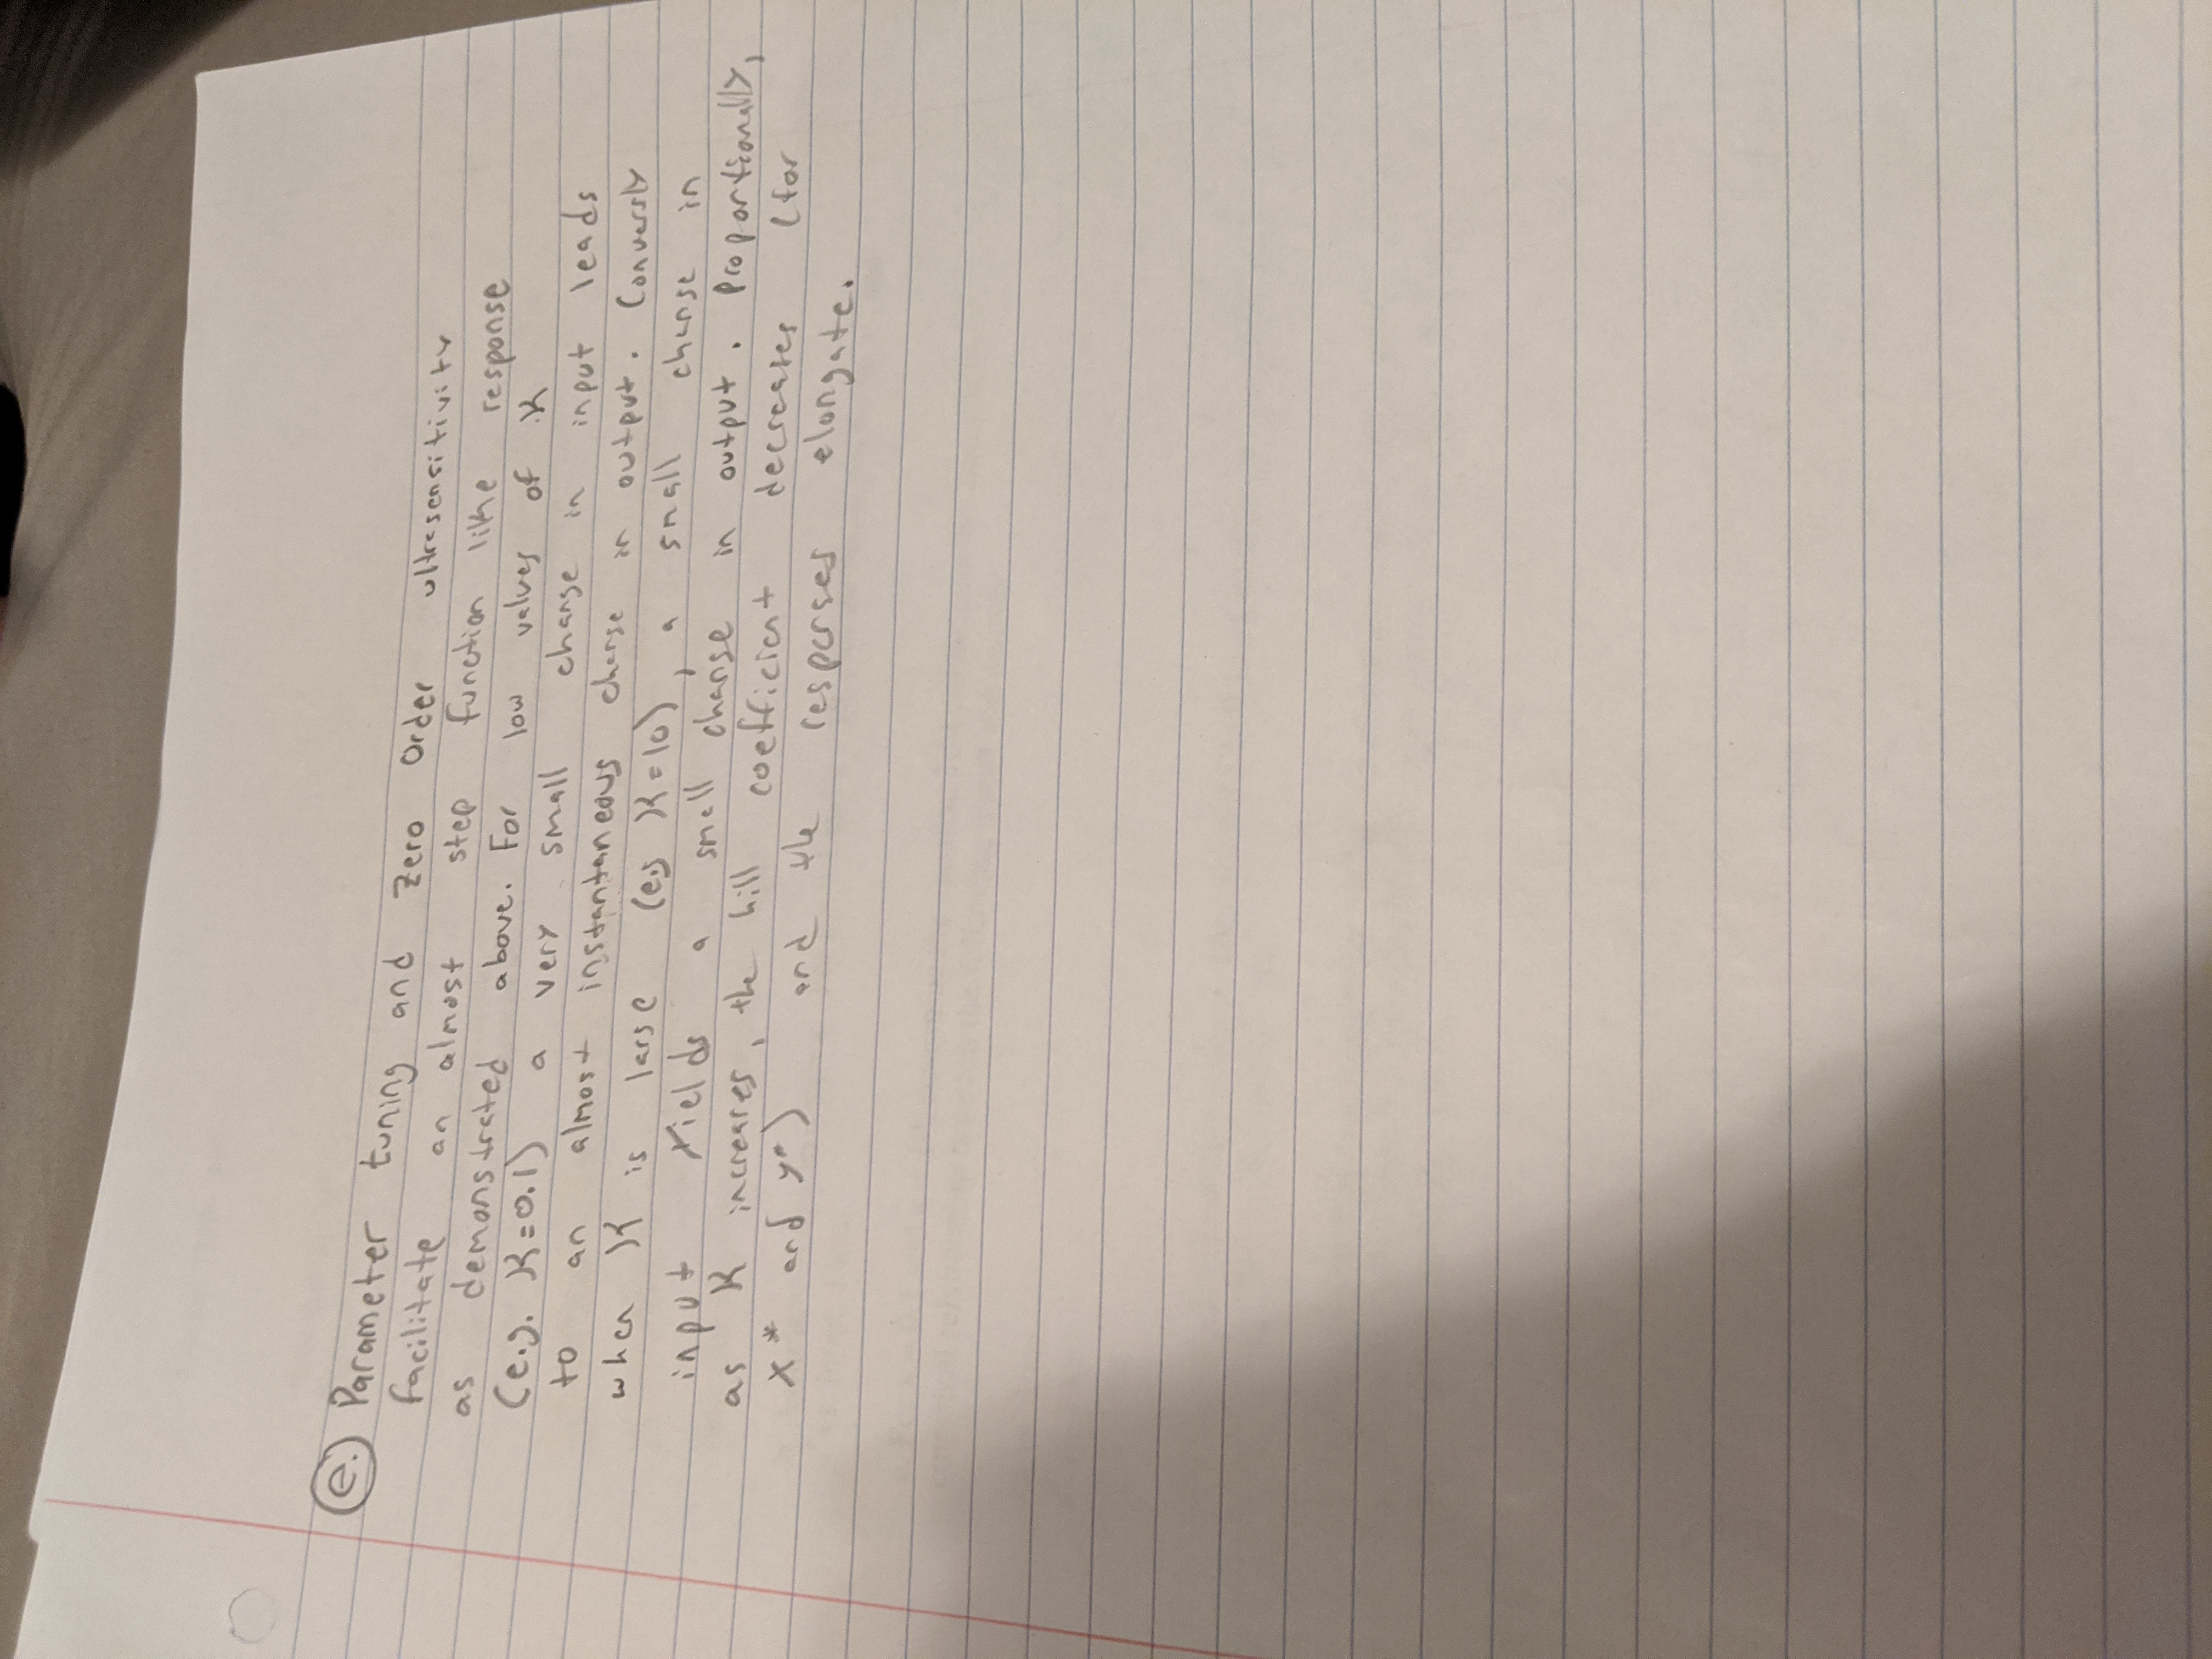 e. Parameter tuning and Zero Order ultrasensitivity
facilitate an almost step function like response
as demonstrated above. For low values of K
(e.g. K=0.1) a very small change in input leads
to an almost instantaneous change in output. Conversly
when K is large (e.g K=10), a small change in
input yields a small change in output. Proportionally,
as K increases, the hill coefficient decreases (for
x* and y*) and the responses elongate.